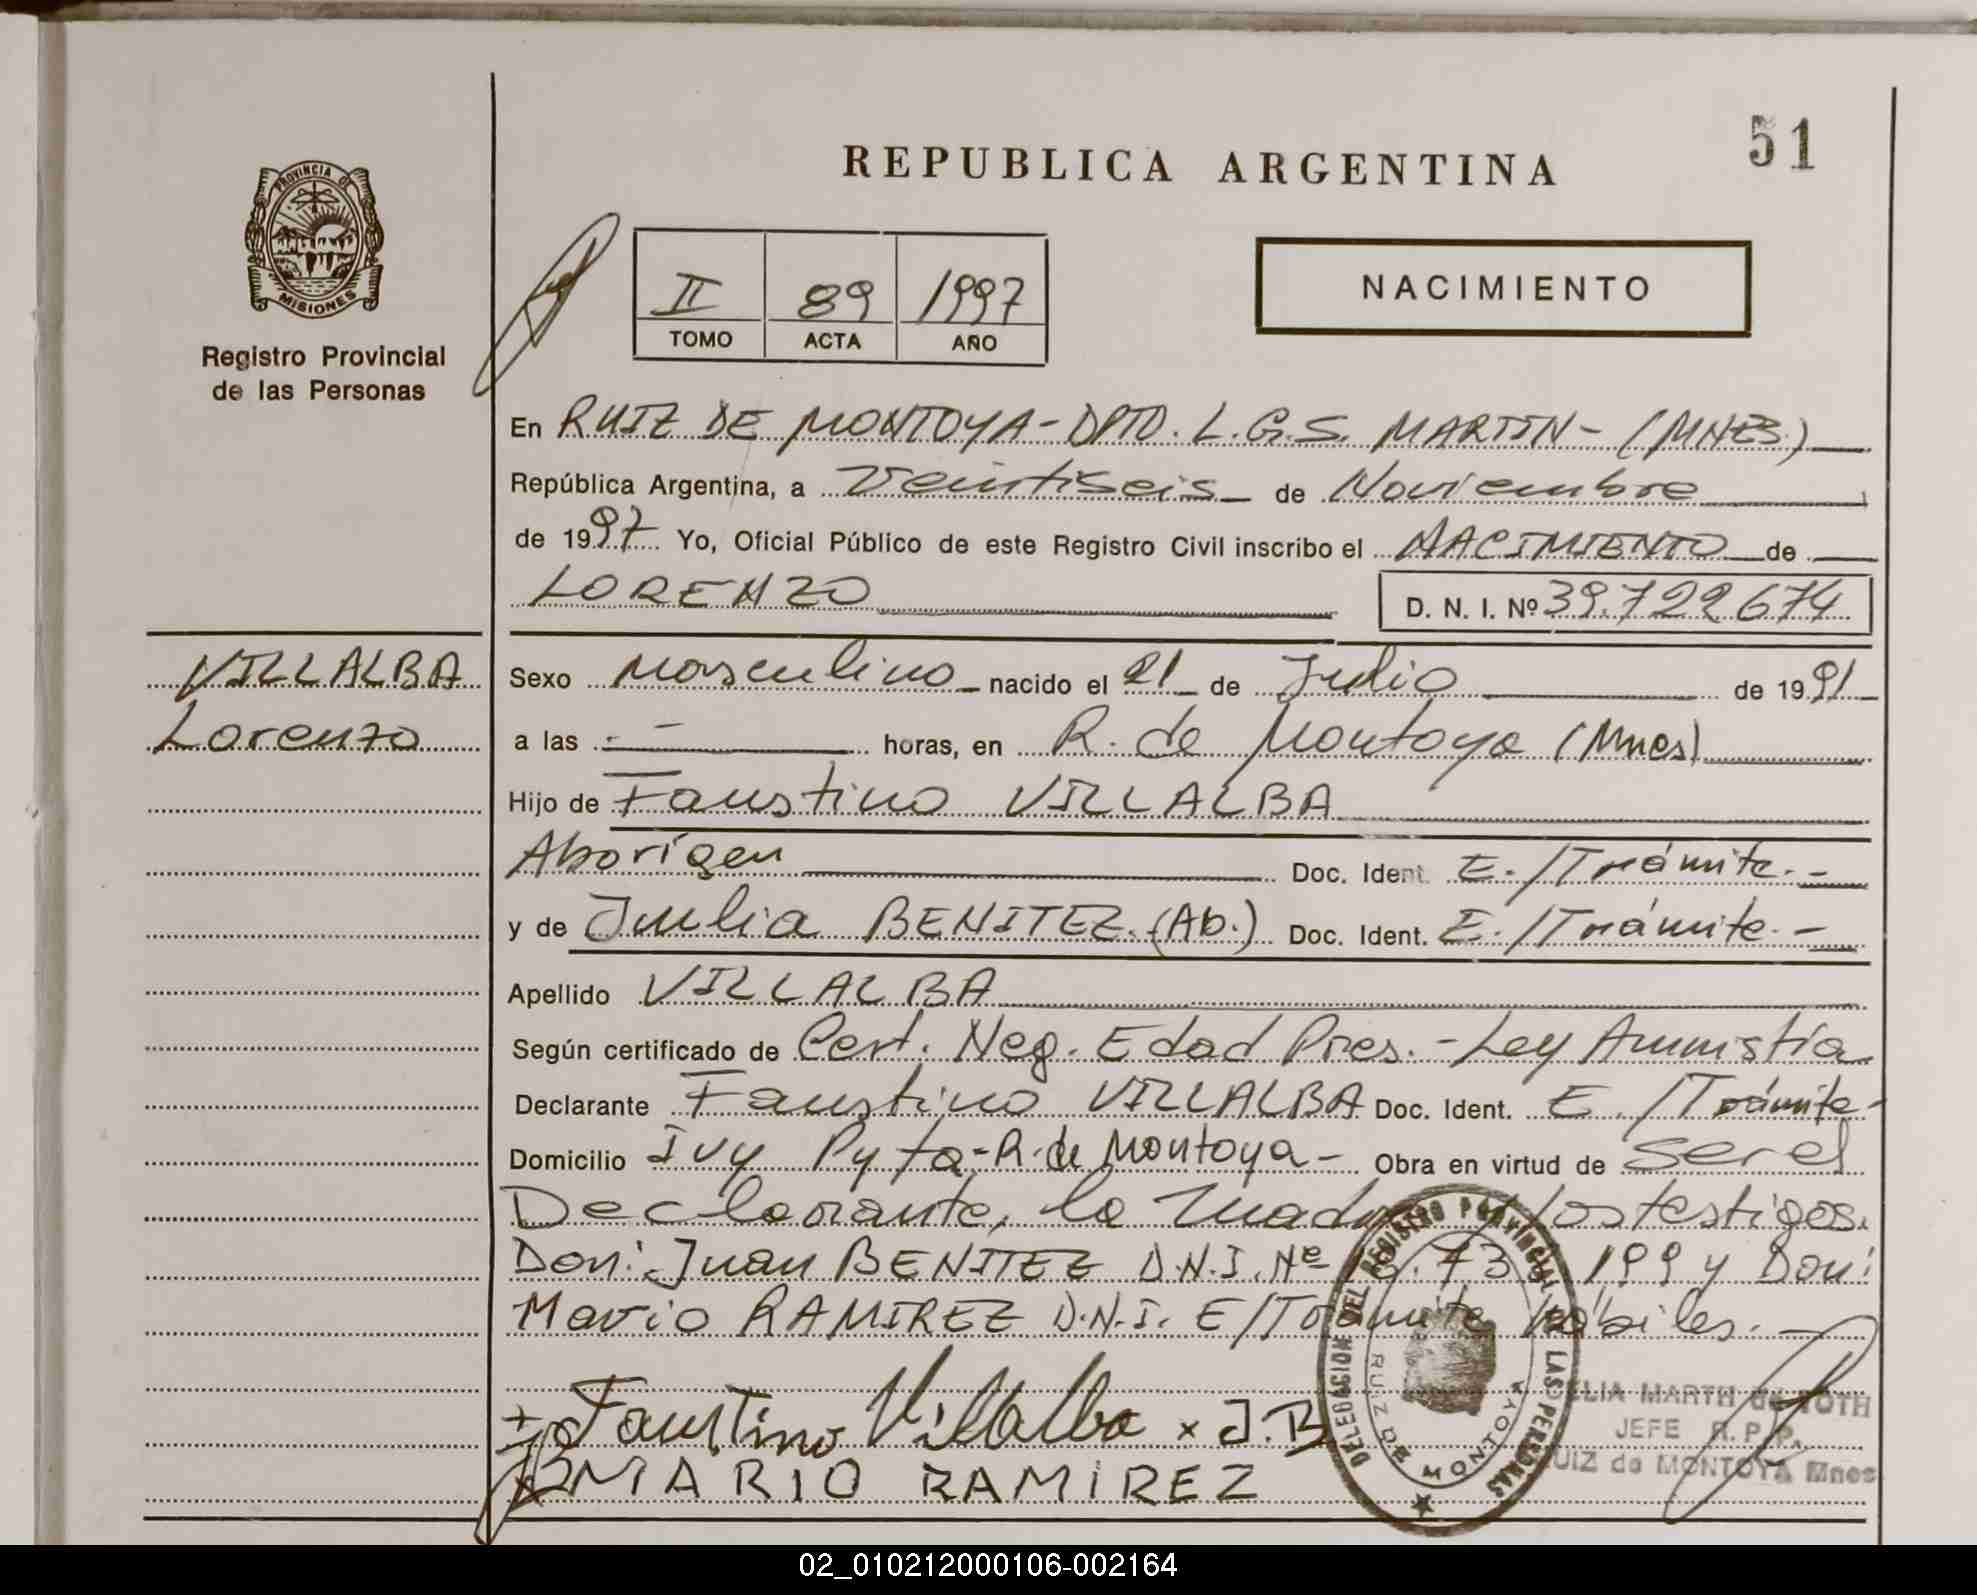 51
REPUBLICA ARGENTINA
PROVINCIA DE
MISIONES
Registro Provincial
de las Personas
II 89 1997
TOMO ACTA AÑO
NACIMIENTO
En RUIZ DE MONTOYA - DPTO. L.G.S. MARTIN - (MNES)
República Argentina, a Veintiseis de Noviembre
de 1997 Yo, Oficial Público de este Registro Civil inscribo el NACIMIENTO de
LORENZO D. N. I. Nº 39.722674
VILLALBA
Lorenzo
Sexo Masculino nacido el 21 de Julio de 1991
a las - - horas, en R. de Montoya (Mnes)
Hijo de Faustino VILLALBA
Aborigen Doc. Ident. E./Trámite.-
y de Julia BENITEZ (Ab.) Doc. Ident. E./Trámite.-
Apellido VILLALBA
Según certificado de Cert. Neg. Edad Pres. - Ley Amnistía
Declarante Faustino VILLALBA Doc. Ident. E./Trámite-
Domicilio Ivy Pyta - R. de Montoya - Obra en virtud de ser el
Declarante, la madre y los testigos.
Don: Juan BENITEZ D.N.I. Nº 199 y Don:
Mario RAMIREZ D.N.I. E/Trámite hábiles.-
Faustino Villalba x J.B
MARIO RAMIREZ
DELEGACION DEL REGISTRO PROVINCIAL DE LAS PERSONAS
RUIZ DE MONTOYA
ELIA MARTH de TOTH
JEFE R.P.P.
RUIZ de MONTOYA Mnes
02_010212000106-002164